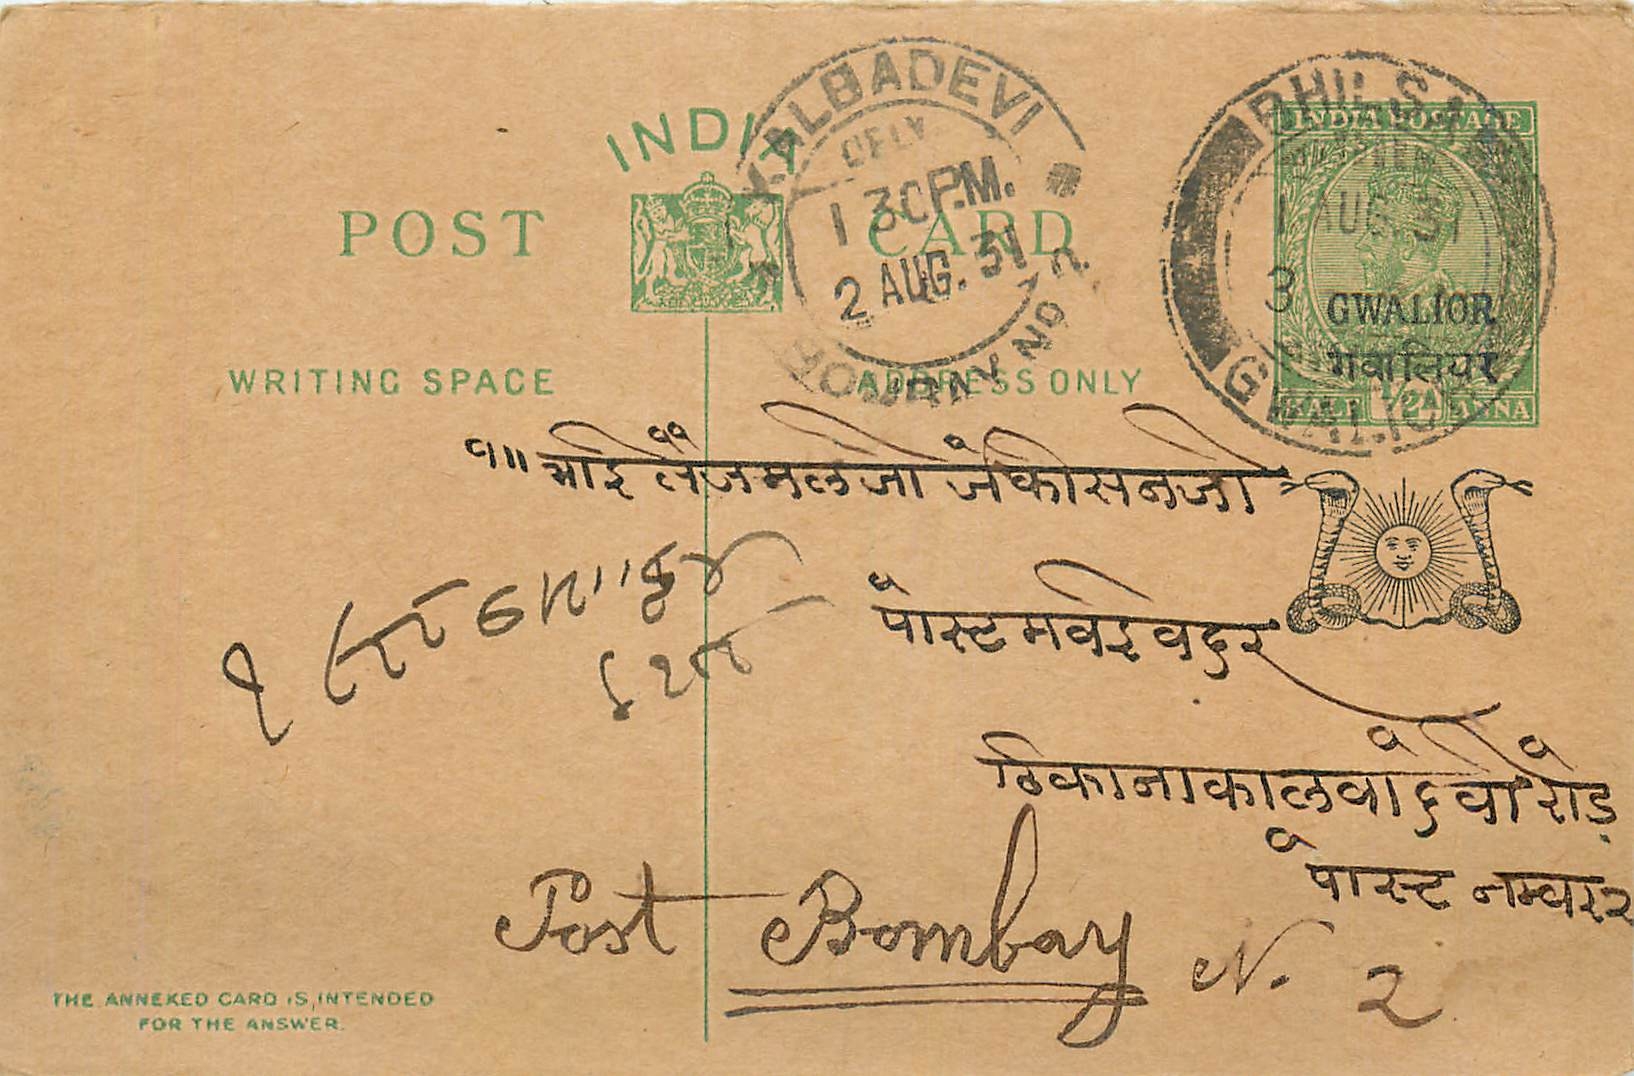 INDIA
POST CARD
WRITING SPACE
ADDRESS ONLY
KALBADEVI
DELY
1 30 P.M.
2 AUG. 31
BOMBAY NO 2
BHILSA
1 AUG 31
3
GWALIOR
INDIA POSTAGE
GWALIOR
गवालियर
HALF 1/2A ANNA
पोस्ट मवई वदर
ठिकाना कालवादेवी रोड
पोस्ट नम्वर २
Post Bombay
N. 2
THE ANNEXED CARD IS INTENDED
FOR THE ANSWER.